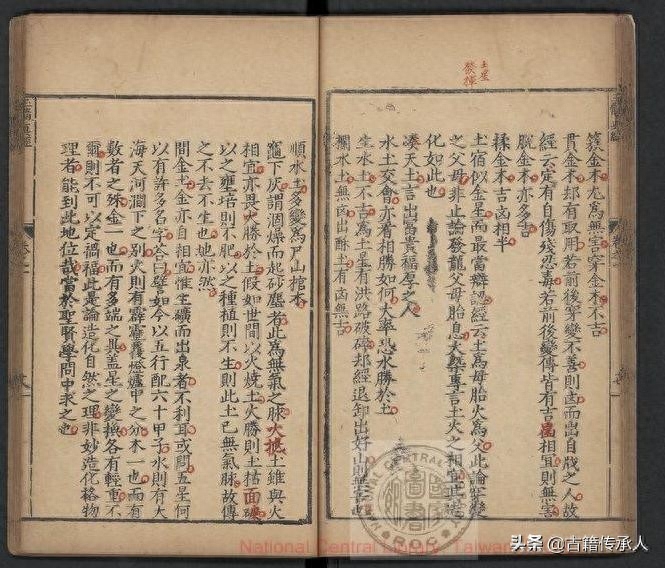 土星
發揮
金木尤為無害穿金木不吉
貫金木却有取用若前後穿變不善則凶而出自戕之人故
經云定有自傷殘忍毒若前後變傳皆有吉星相宜則無害
脫金木亦多吉
揉金木吉凶相半
土宿似金星而最當辯認經云土為母胎火為父此論穿變
之父母非止論發龍父母胎息大槩專言土火之相生此造
化如此也
凑天土言出富貴福厚之人
水土交會亦看相勝如何大率恐水勝於土
生水土不吉為土星有洪路破碎却經退卸出好山則無害也
攔水土無凶出酥土有凶無吉
順水土多變為尸山棺木
竈下灰謂涸燥而起砂塵者此為無氣之脉大抵土雖與火
相宜亦畏火勝於土假如世間以火燒土火勝則土枯面礫
以之壅培則不肥以之種植則不生則此土已無氣脉故傳
之不去不生也地亦然
間金土金亦自相宜惟生礦而出泉者不利耳或問五星何
以有許多名字荅曰譬如今以五行配六十甲子水則有大
海天河澗下之別火則有霹靂覆燈爐中之分木一也而有
數者之殊金一也而有多端之異蓋五星之變換各有輕重不
齊則不可以定禍福此是論造化自然之理非妙造化格物
理者能到此地位哉當於聖賢學問中求之也
National Central Library, Taiwan
頭条 @古籍传承人